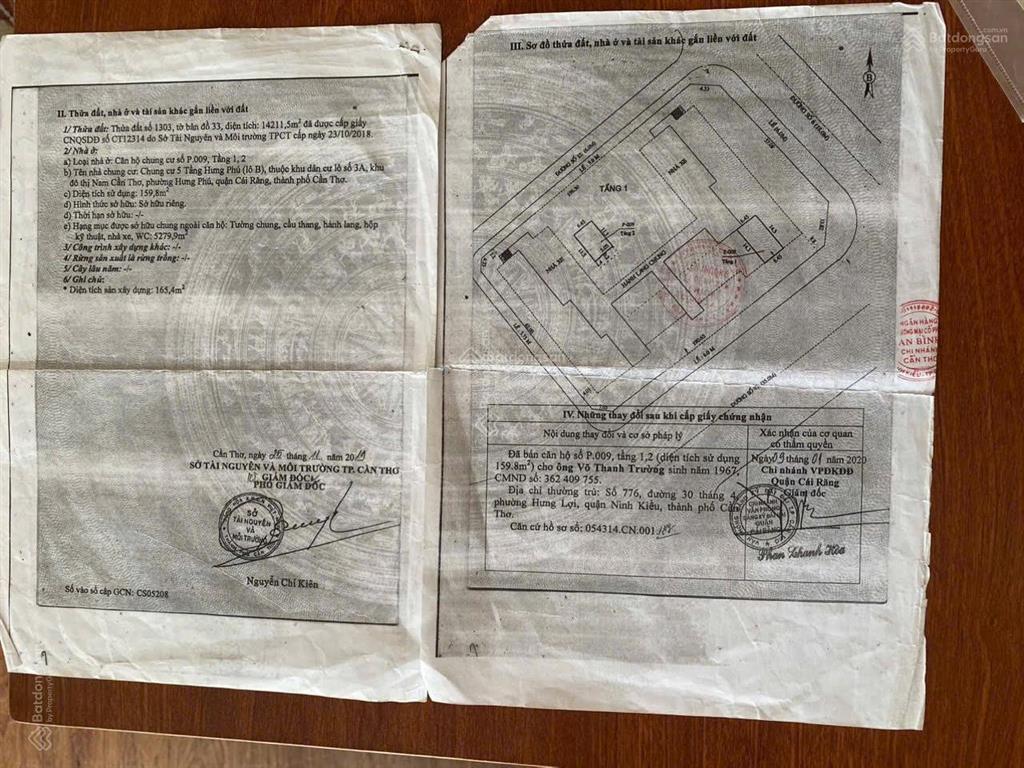 II. Thửa đất, nhà ở và tài sản khác gắn liền với đất
1/ Thửa đất: Thửa đất số 1303, tờ bản đồ 33, diện tích: 14211,5m² đã được cấp giấy
CNQSDĐ số CT12314 do Sở Tài Nguyên và Môi trường TPCT cấp ngày 23/10/2018.
2/ Nhà ở:
a) Loại nhà ở: Căn hộ chung cư số P.009, Tầng 1, 2
b) Tên nhà chung cư: Chung cư 5 Tầng Hưng Phú (lô B), thuộc khu dân cư lô số 3A, khu
đô thị Nam Cần Thơ, phường Hưng Phú, quận Cái Răng, thành phố Cần Thơ.
c) Diện tích sử dụng: 159,8m²
d) Hình thức sở hữu: Sở hữu riêng.
đ) Thời hạn sở hữu: -/-
e) Hạng mục được sở hữu chung ngoài căn hộ: Tường chung, cầu thang, hành lang, hộp
kỹ thuật, nhà xe, WC: 5279,9m²
3/ Công trình xây dựng khác: -/-
4/ Rừng sản xuất là rừng trồng: -/-
5/ Cây lâu năm: -/-
6/ Ghi chú:
* Diện tích sàn xây dựng: 165,4m²
Cần Thơ, ngày tháng 11 năm 2019
SỞ TÀI NGUYÊN VÀ MÔI TRƯỜNG TP. CẦN THƠ
KT. GIÁM ĐỐC
PHÓ GIÁM ĐỐC
SỞ
TÀI NGUYÊN
VÀ
MÔI TRƯỜNG
Nguyễn Chí Kiên
Số vào sổ cấp GCN: CS05208
III. Sơ đồ thửa đất, nhà ở và tài sản khác gắn liền với đất
B
TẦNG 1
NHÀ XE
NHÀ XE
HÀNH LANG CHUNG
P-009
Tầng 2
P-009
Tầng 1
LỀ 5.0 M
NGÂN HÀNG
AN BÌNH
CHI NHÁNH
CẦN THƠ
IV. Những thay đổi sau khi cấp giấy chứng nhận
Nội dung thay đổi và cơ sở pháp lý
Xác nhận của cơ quan
có thẩm quyền
Đã bán căn hộ số P.009, tầng 1,2 (diện tích sử dụng
159.8m²) cho ông Võ Thanh Trường sinh năm 1967,
CMND số: 362 409 755.
Địa chỉ thường trú: Số 776, đường 30 tháng 4,
phường Hưng Lợi, quận Ninh Kiều, thành phố Cần
Thơ.
Căn cứ hồ sơ số: 054314.CN.001
Ngày 09 tháng 01 năm 2020
Chi nhánh VPĐKĐĐ
Quận Cái Răng
Giám đốc
Phan Thanh Hòa
Batdongsan
by PropertyGuru